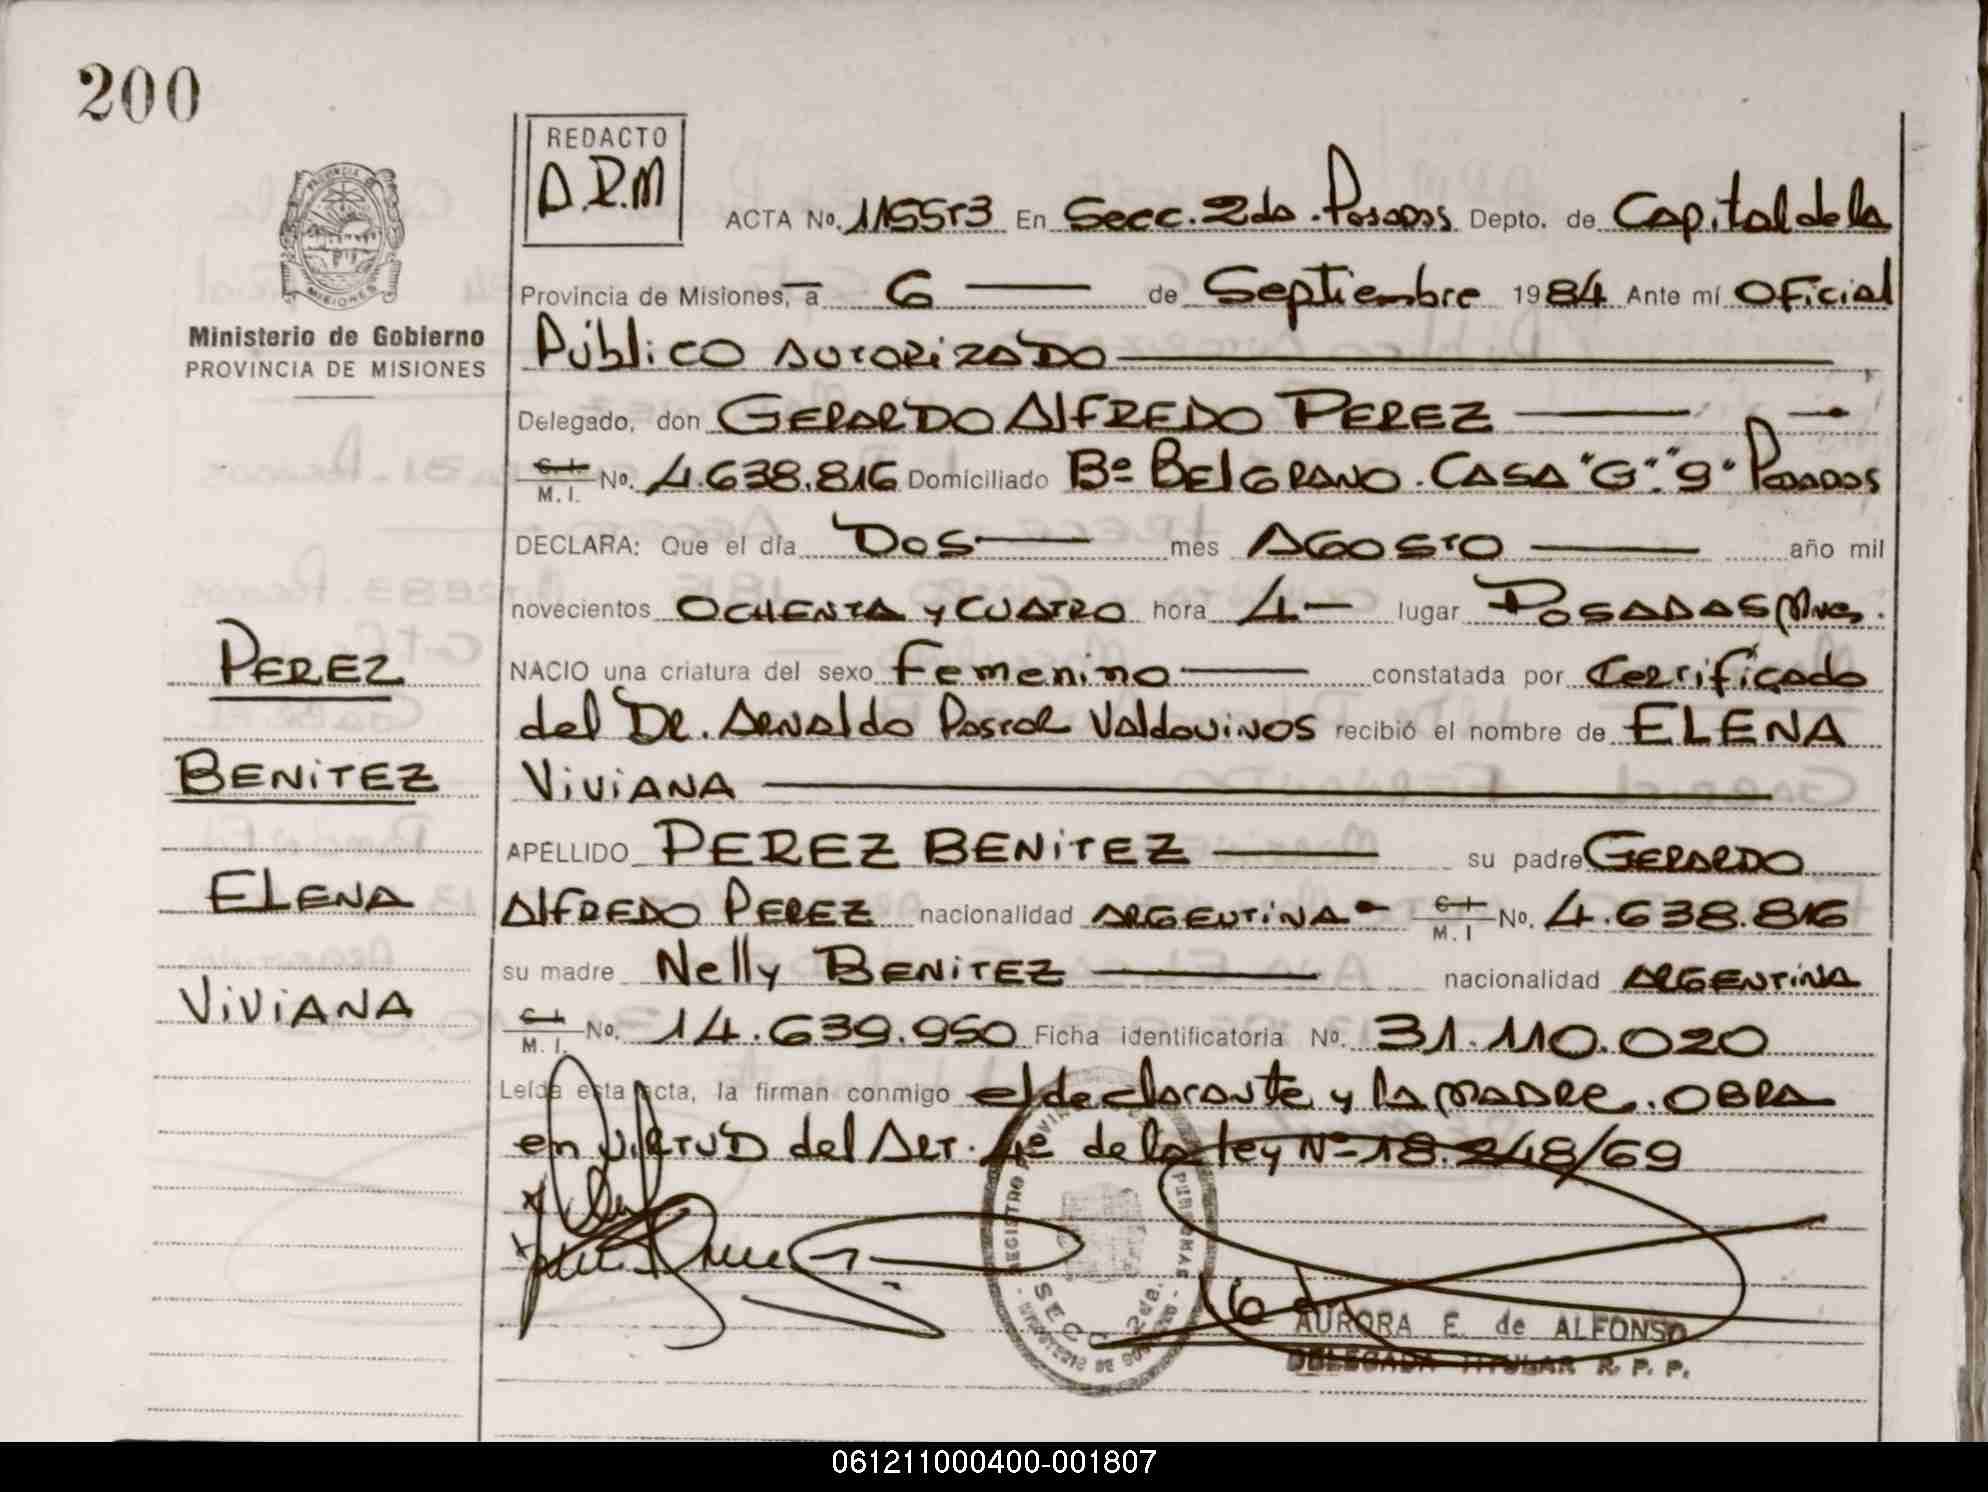 200
REDACTO
D.R.M
ACTA No. 11553 En Secc. 2da. Posadas Depto. de Capital de la
Provincia de Misiones, a 6 de Septiembre 1984 Ante mí Oficial
Público AUTORIZADO
Delegado, don GERARDO ALFREDO PEREZ
C.I. M.I. No. 4.638.816 Domiciliado Bº BELGRANO. CASA "G" "9" Posadas
DECLARA: Que el día DOS mes AGOSTO año mil
novecientos OCHENTA y CUATRO hora 4 lugar POSADAS Mnes.
NACIO una criatura del sexo Femenino constatada por Certificado
del DR. Arnaldo Pastor Valdovinos recibió el nombre de ELENA
ViViANA
APELLIDO PEREZ BENiTEZ su padre GERARDO
ALFREDO PEREZ nacionalidad ARGENTiNA C.I. M.I No. 4.638.816
su madre Nelly BENiTEZ nacionalidad ARGENTiNA
C.I. M.I. No. 14.639.950 Ficha identificatoria No. 31.110.020
Leída esta acta, la firman conmigo el declarante y la MADRE. OBRA
en ViRTUD del ART. 4º de la ley Nº 18.248/69
PROVINCIA DE MISIONES
Ministerio de Gobierno
PROVINCIA DE MISIONES
PEREZ
BENiTEZ
ELENA
ViViANA
SECC. 2da.
AURORA E. de ALFONSO
DELEGADA TITULAR R. P. P.
061211000400-001807